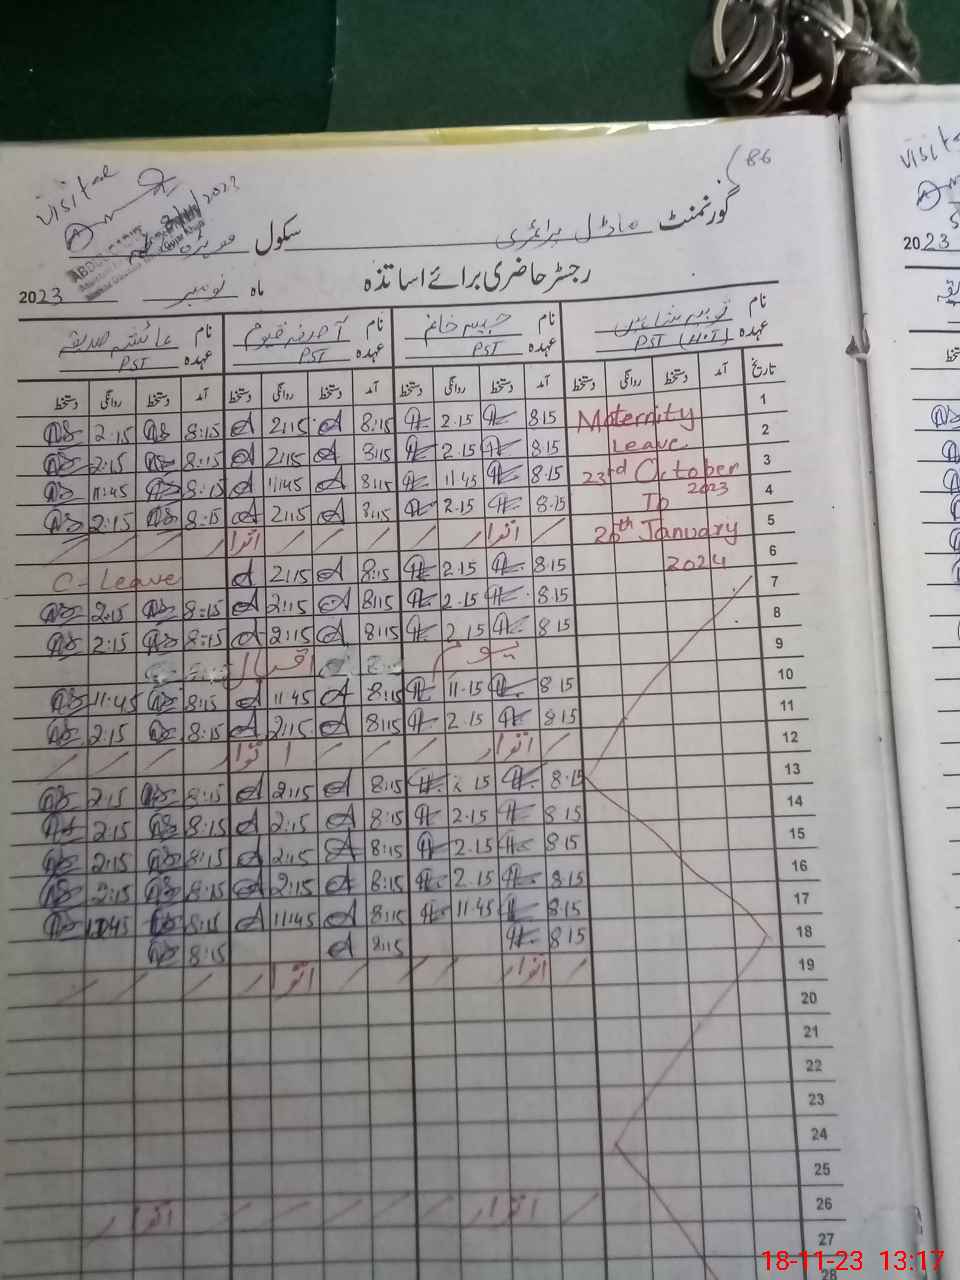 86
visited
2023
گورنمنٹ ماڈل پرائمری سکول
رجسٹر حاضری برائے اساتذہ
ماہ نومبر 2023
نام نام حبیبہ خانم نام نام عائشہ صدیقہ
عہدہ PST (H.T) عہدہ PST عہدہ PST عہدہ PST
تاریخ آمد دستخط روانگی دستخط آمد دستخط روانگی دستخط آمد دستخط روانگی دستخط آمد دستخط روانگی دستخط
2:15 8:15 2:15 8:15 2.15 8 15 Maternity 1
2:15 8:15 2:15 8:15 2.15 8.15 Leave 2
11:45 8:15 11:45 8:15 11.45 8.15 23rd October 2023 3
2:15 8:15 2:15 8:15 2.15 8.15 To 4
اتوار اتوار 26th January 5
C-Leave 2:15 8:15 2.15 8.15 2024 6
2:15 8:15 2:15 8:15 2.15 8.15 7
2:15 8:15 2:15 8:15 2.15 8.15 8
یوم اقبال 9
11:45 8:15 11:45 8:15 11.15 8 15 10
2:15 8:15 2:15 8:15 2.15 8 15 11
اتوار اتوار 12
2:15 8:15 2:15 8:15 2 15 8.15 13
2:15 8:15 2:15 8:15 2.15 8 15 14
2:15 8:15 2:15 8:15 2.15 8 15 15
2:15 8:15 2:15 8:15 2.15 8.15 16
11:45 8:15 11:45 8:15 11.45 8.15 17
8:15 8:15 8 15 18
اتوار اتوار 19
20
21
22
23
24
25
اتوار اتوار 26
27
28
visit
2023
18-11-23 13:17